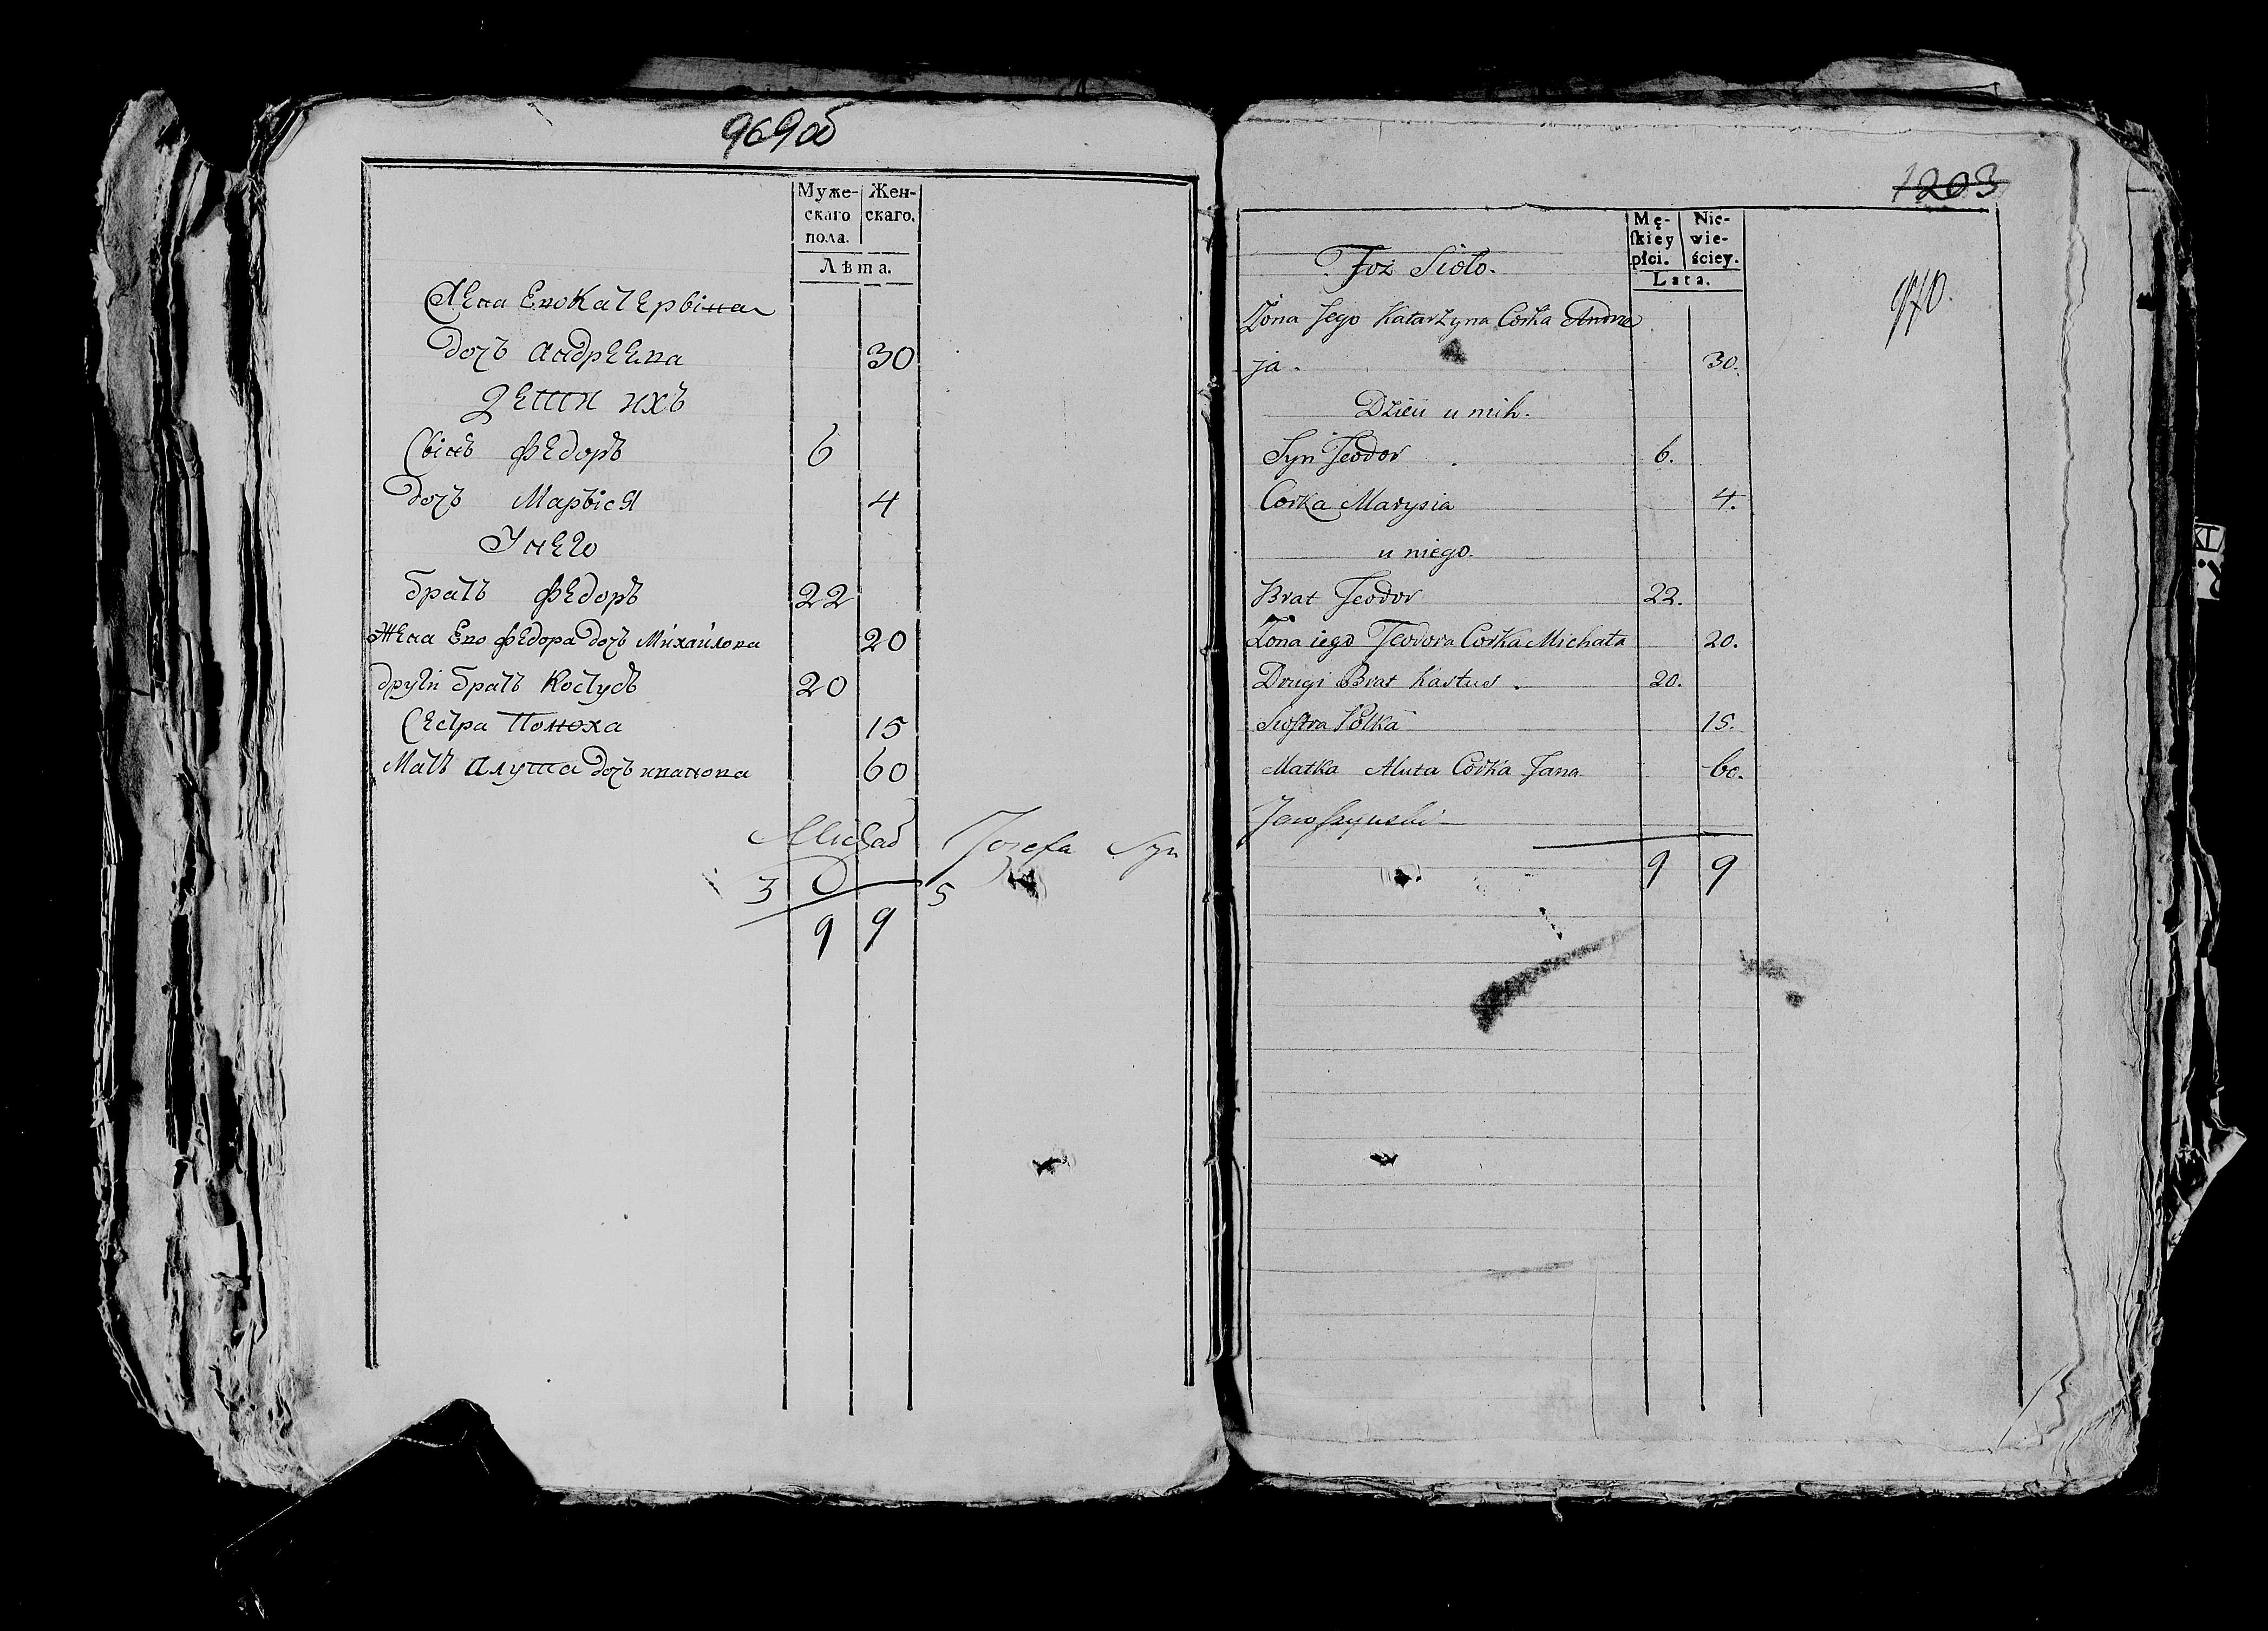 969об
Муже- Жен-
скаго скаго.
пола.
Лѣта.
Жена Ево Катерьіна
дочъ андреева 30
Дети ихъ
Сьінъ Федоръ 6
дочъ Марьіся 4
У него
братъ Федоръ 22
Жена Ево Федора дочъ Михайлова 20
други братъ Костусъ 20
Сестра Полюха 15
Матъ алута дочъ иванова 60
Michał Jozefa Syn
3 5
9 9
1203
970.
Mę- Nie-
skiey wie-
płci. ściey.
Lata.
Toż Sioło.
Żona Jego Katarzyna Corka Andrze
ja. 30.
Dzieci u nich.
Syn Teodor 6.
Corka Marysia 4.
u niego.
Brat Teodor 22.
Żona iego Teodora Corka Michała 20.
Drugi Brat Kastus. 20.
Siostra Polka 15.
Matka Aluta Corka Jana 60.
9 9